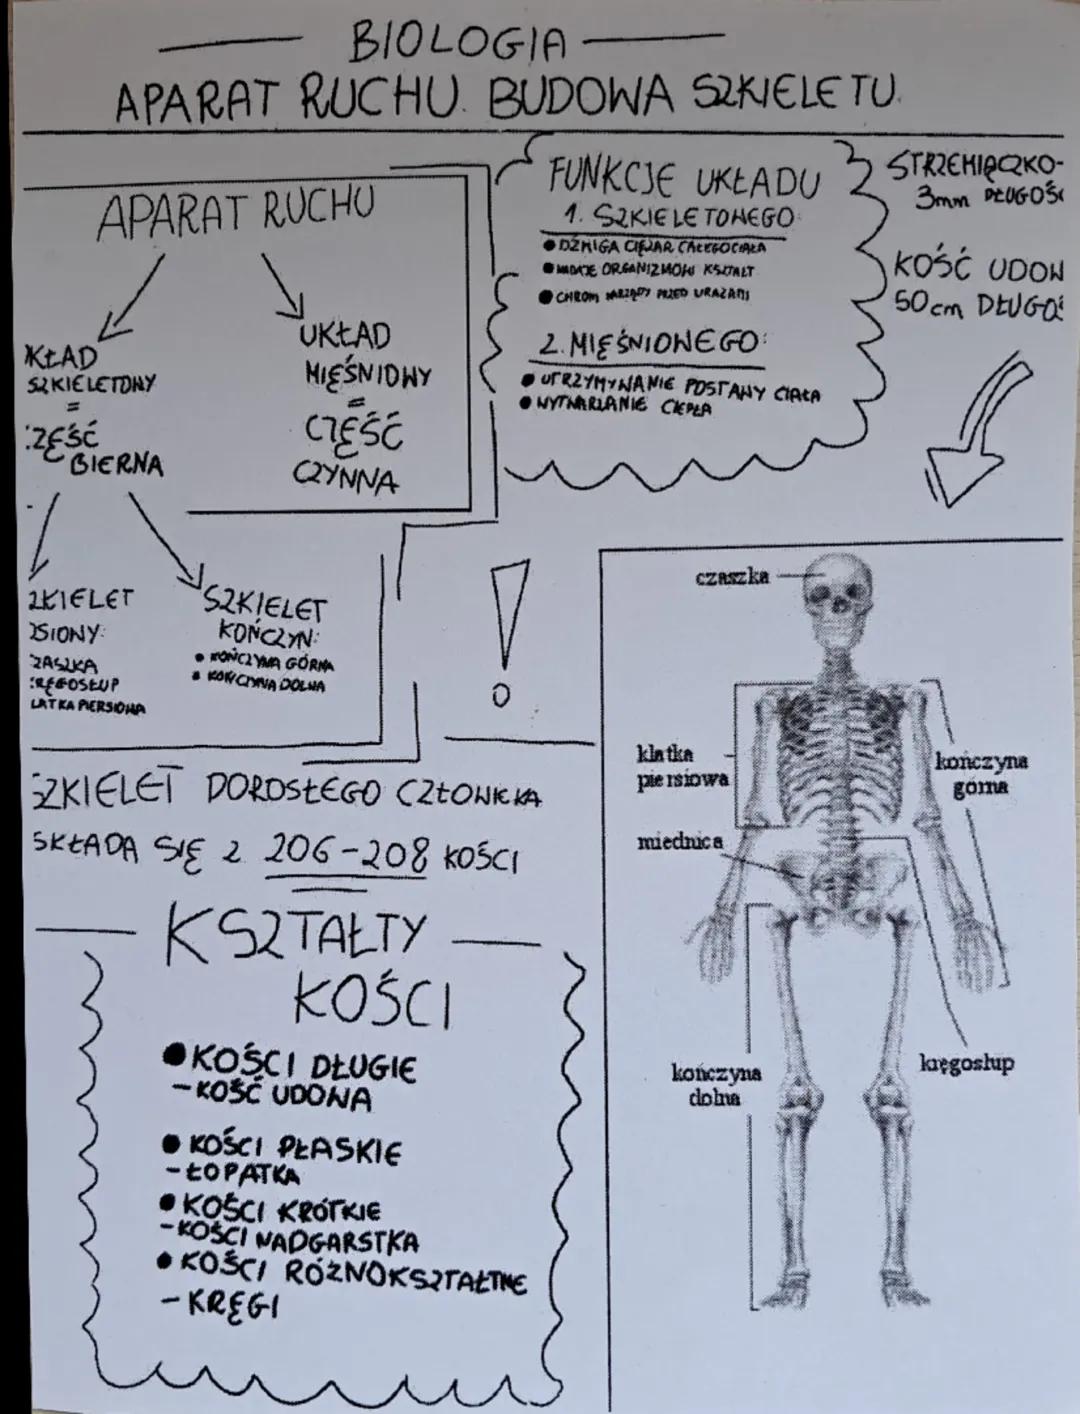 BIOLOGIA
APARAT RUCHU. BUDOWA SZKIELETU.
APARAT RUCHU
KŁAD
SZKIELETOWY
=
ZĘŚĆ
BIERNA
UKŁAD
MIĘŚNIOWY
=
CZĘŚĆ
CZYNNA
ZKIELET
OSIOWY:
ZASZKA
RĘGOSŁUP
LATKA PIERSIOWA
SZKIELET
KOŃCZYN:
• KOŃCZYNA GÓRNA
• KOŃCZYNA DOLNA
FUNKCJE UKŁADU
1. SZKIELETOWEGO:
• DŹWIGA CIĘŻAR CAŁEGO CIAŁA
• NADAJE ORGANIZMOWI KSZTAŁT
• CHRONI NARZĄDY PRZED URAZAMI
2. MIĘŚNIOWEGO:
• UTRZYMYWANIE POSTAWY CIAŁA
• WYTWARZANIE CIEPŁA
STRZEMIĄCZKO-
3mm DŁUGOŚ
KOŚĆ UDOW
50cm DŁUGOŚ
!
SZKIELET DOROSŁEGO CZŁOWIEKA
SKŁADA SIĘ Z 206-208 KOŚCI
KSZTAŁTY
KOŚCI
• KOŚCI DŁUGIE
- KOŚĆ UDOWA
• KOŚCI PŁASKIE
- ŁOPATKA
• KOŚCI KRÓTKIE
- KOŚCI NADGARSTKA
• KOŚCI RÓŻNOKSZTAŁTNE
- KRĘGI
czaszka
klatka
piersiowa
kończyna
górna
miednica
kręgosłup
kończyna
dolna